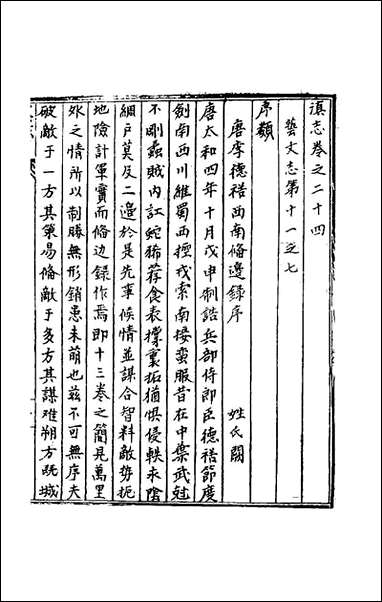 滇志卷之二十四
藝文志第十一之七
序類
唐李德裕西南備邊錄序　姓氏闕
唐太和四年十月戊申制誥兵部侍郎臣德裕節度
劍南西川維蜀西控戎索南接蛮服昔在中葉武尅
不剛蟊賊内訌蛇豨荐食表攘裏拓猶惧侵軼未陰
綢戶莫及二邉於是先事候情並謀合智料敵势扼
地險計軍實而備边錄作焉即十三卷之簡見萬里
外之情所以制勝無形銷患未萌也兹不可無序夫
破敵于一方其策易備敵于多方其謀难朔方既城